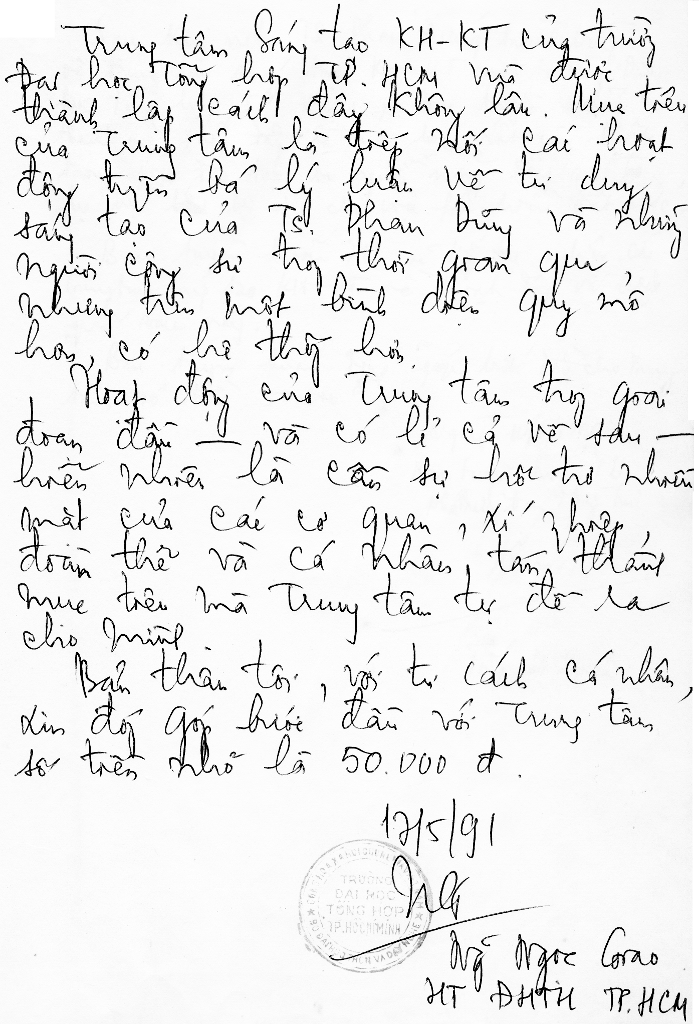 Trung tâm Sáng tạo KH-KT của trường
Đại học Tổng hợp TP. HCM vừa được
thành lập cách đây không lâu. Mục tiêu
của Trung tâm là tiếp nối các hoạt
động truyền bá lý luận về tư duy
sáng tạo của Ts. Phan Dũng và những
người cộng sự trong thời gian qua,
nhưng trên một bình diện quy mô
hơn, có hệ thống hơn.
Hoạt động của Trung tâm trong giai
đoạn đầu — và có lẽ cả về sau —
hiển nhiên là cần sự hỗ trợ nhiều
mặt của các cơ quan, xí nghiệp,
đoàn thể và cá nhân tán thành
mục tiêu mà Trung tâm tự đề ra
cho mình.
Bản thân tôi, với tư cách cá nhân,
xin đóng góp bước đầu với Trung tâm
số tiền nhỏ là 50.000 đ.
17/5/91
TRƯỜNG
ĐẠI HỌC
TỔNG HỢP
TP. HỒ CHÍ MINH
Ng Ngọc Giao
HT ĐHTH TP.HCM